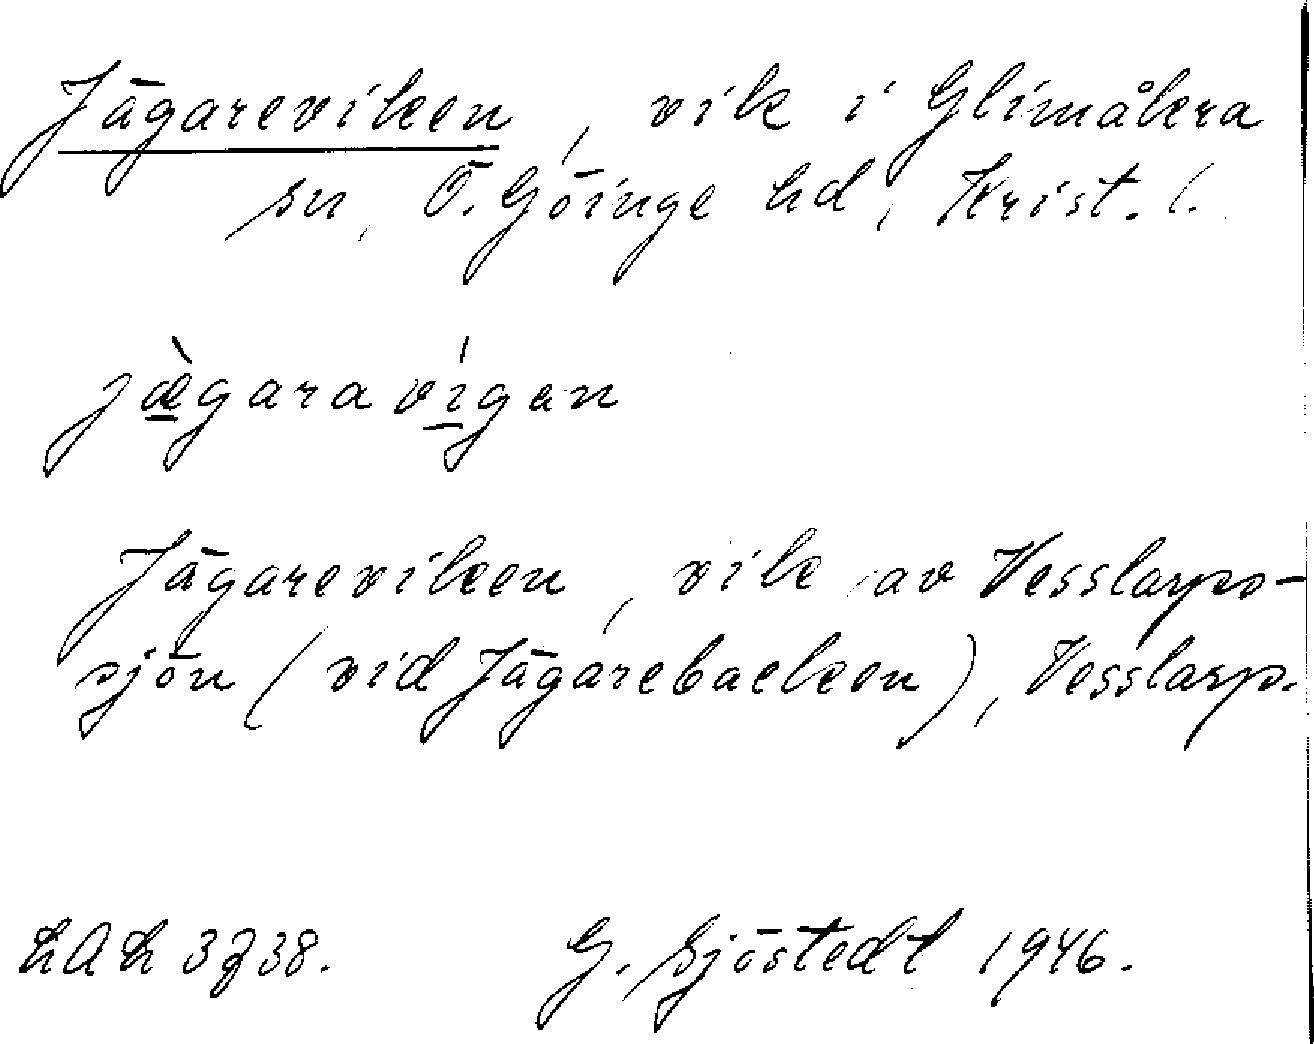 Jägareviken, vik i Glimåkra
sn, Ö. Göinge hd, Krist. l.
jæ̀garavígan
Jägareviken, vik av Vesslarps-
sjön (vid Jägarebacken), Vesslarp.
G. Sjöstedt 1946.